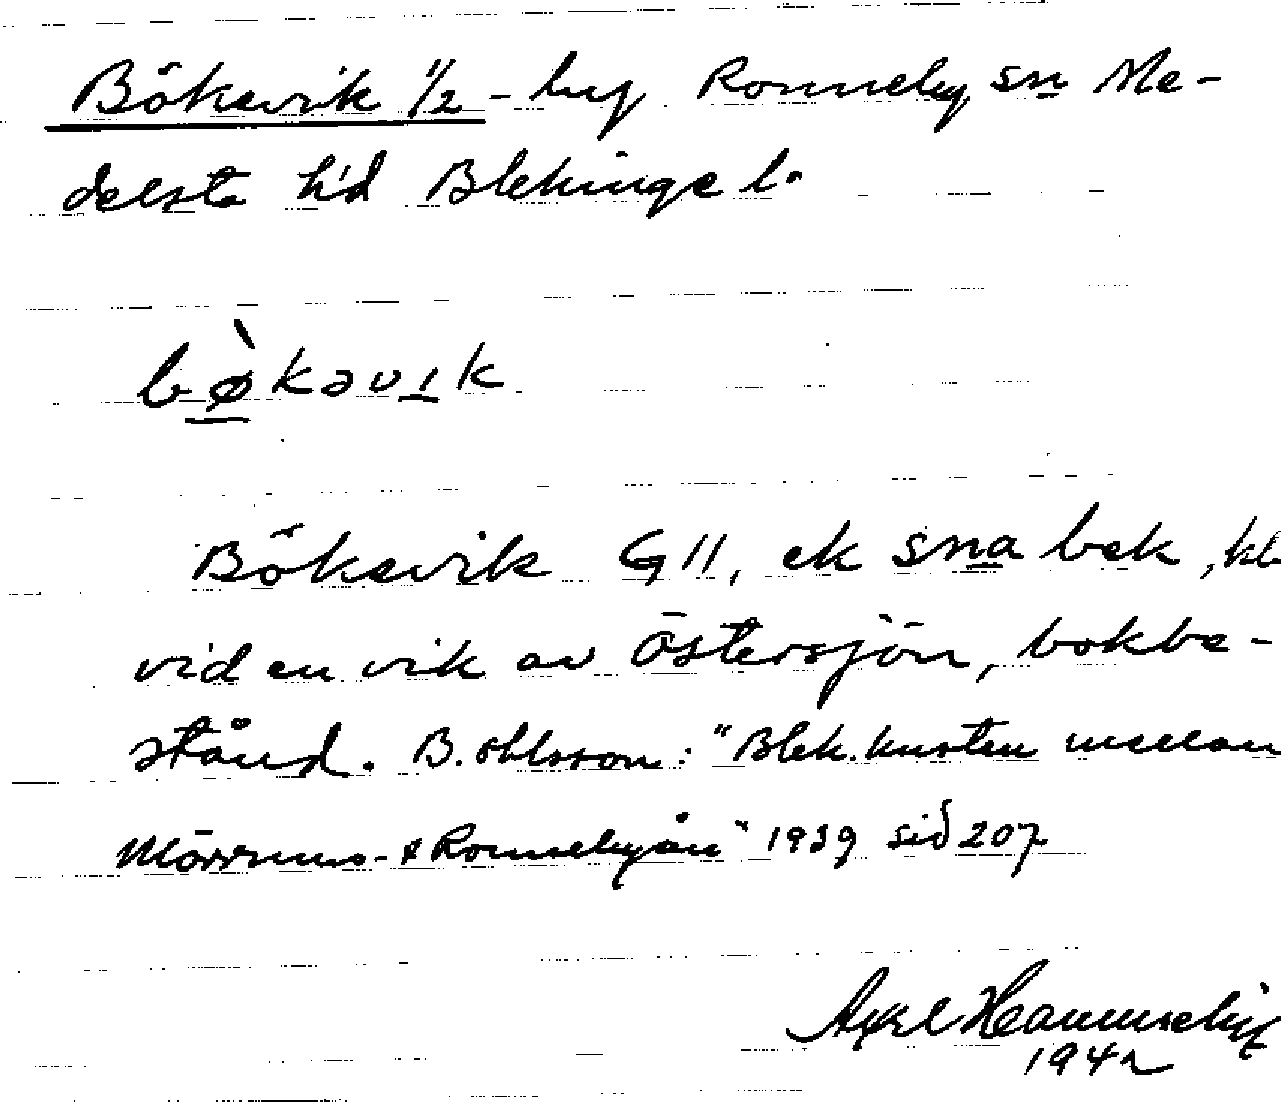 Bökevik 1/2 - by Ronneby sn Me-
delsta h'd Blekinge l.
bø̀kəvık
Bökevik G 11, ek sna bek, kl
vid en vik av Östersjön, bokbe-
stånd. B. Ohlsson: "Blek. kusten mellan
Mörrums- & Ronnebyån" 1939 sid 207
Axel
1942